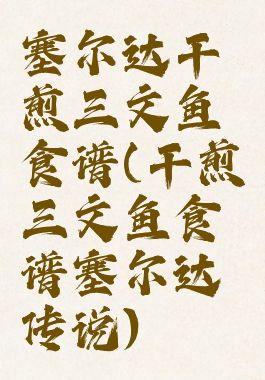 塞尔达干
煎三文鱼
食谱(干煎
三文鱼食
谱塞尔达
传说)